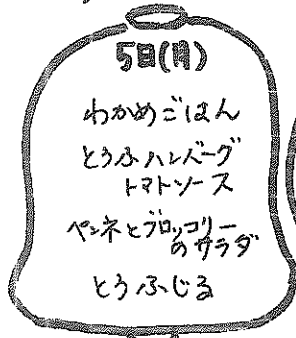 5日(月)
わかめごはん
とうふハンバーグ
トマトソース
ペンネとブロッコリー
のサラダ
とうふじる